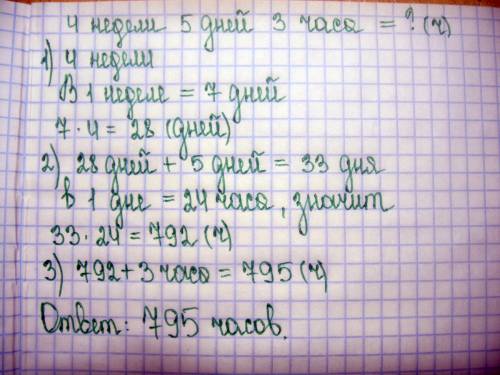 4 недели 5 дней 3 часа = ? (ч)
1) 4 недели
В 1 неделе = 7 дней
7 · 4 = 28 (дней)
2) 28 дней + 5 дней = 33 дня
в 1 дне = 24 часа, значит
33 · 24 = 792 (ч)
3) 792 + 3 часа = 795 (ч)
Ответ: 795 часов.